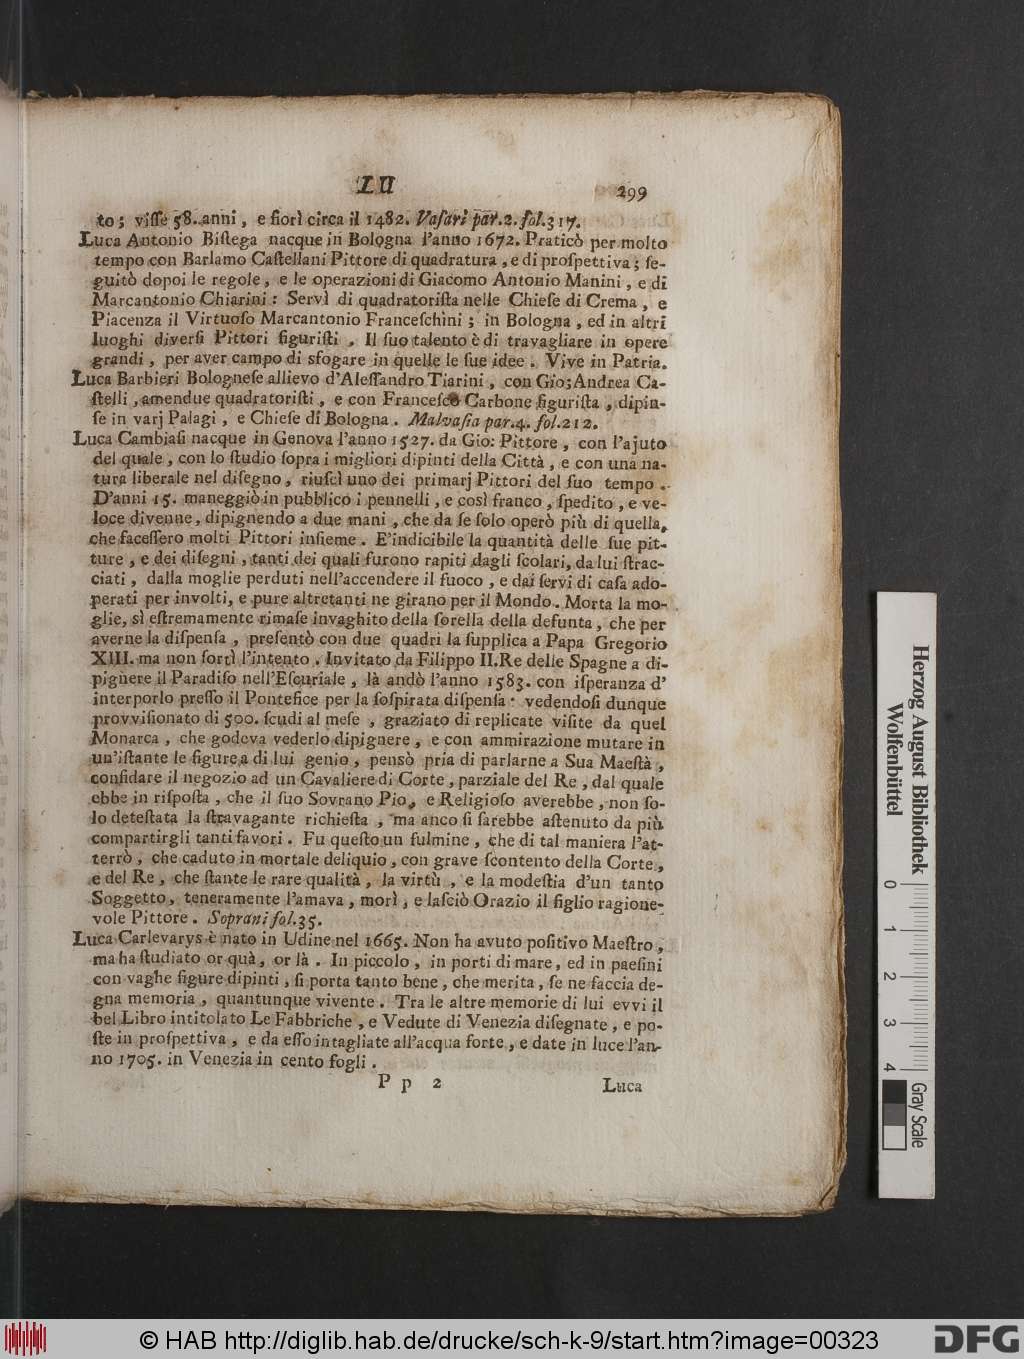 LU
299
to; viſſe 58. anni, e fiorì circa il 1482. Vaſari par.2. fol.317.
Luca Antonio Biſtega nacque in Bologna l'anno 1672. Praticò per molto
tempo con Barlamo Caſtellani Pittore di quadratura, e di proſpettiva; ſe-
guitò dopoi le regole, e le operazioni di Giacomo Antonio Manini, e di
Marcantonio Chiarini: Servì di quadratoriſta nelle Chieſe di Crema, e
Piacenza il Virtuoſo Marcantonio Franceſchini; in Bologna, ed in altri
luoghi diverſi Pittori figuriſti. Il ſuo talento è di travagliare in opere
grandi, per aver campo di sfogare in quelle le ſue idee. Vive in Patria.
Luca Barbieri Bologneſe allievo d'Aleſſandro Tiarini, con Gio; Andrea Ca-
ſtelli, amendue quadratoriſti, e con Franceſco Carbone figuriſta, dipin-
ſe in varj Palagi, e Chieſe di Bologna. Malvaſia par.4. fol.212.
Luca Cambiaſi nacque in Genova l'anno 1527. da Gio: Pittore, con l'ajuto
del quale, con lo ſtudio ſopra i migliori dipinti della Città, e con una na-
tura liberale nel diſegno, riuſcì uno dei primarj Pittori del ſuo tempo.
D'anni 15. maneggiò in pubblico i pennelli, e così franco, ſpedito, e ve-
loce divenne, dipignendo a due mani, che da ſe ſolo operò più di quella,
che faceſſero molti Pittori inſieme. E'indicibile la quantità delle ſue pit-
ture, e dei diſegni, tanti dei quali furono rapiti dagli ſcolari, da lui ſtrac-
ciati, dalla moglie perduti nell'accendere il fuoco, e dai ſervi di caſa ado-
perati per involti, e pure altretanti ne girano per il Mondo. Morta la mo-
glie, sì eſtremamente rimaſe invaghito della ſorella della defunta, che per
averne la diſpenſa, preſentò con due quadri la ſupplica a Papa Gregorio
XIII. ma non ſortì l'intento. Invitato da Filippo II. Re delle Spagne a di-
pignere il Paradiſo nell'Eſcuriale, là andò l'anno 1583. con iſperanza d'
interporlo preſſo il Pontefice per la ſoſpirata diſpenſa: vedendoſi dunque
provviſionato di 500. ſcudi al meſe, graziato di replicate viſite da quel
Monarca, che godeva vederlo dipignere, e con ammirazione mutare in
un'iſtante le figure a di lui genio, pensò pria di parlarne a Sua Maeſtà,
confidare il negozio ad un Cavaliere di Corte, parziale del Re, dal quale
ebbe in riſpoſta, che il ſuo Sovrano Pio, e Religioſo averebbe, non ſo-
lo deteſtata la ſtravagante richieſta, ma anco ſi ſarebbe aſtenuto da più
compartirgli tanti favori. Fu queſto un fulmine, che di tal maniera l'at-
terrò, che caduto in mortale deliquio, con grave ſcontento della Corte,
e del Re, che ſtante le rare qualità, la virtù, e la modeſtia d'un tanto
Soggetto, teneramente l'amava, morì, e laſciò Orazio il figlio ragione-
vole Pittore. Soprani fol.35.
Luca Carlevarys è nato in Udine nel 1665. Non ha avuto poſitivo Maeſtro,
ma ha ſtudiato or quà, or là. In piccolo, in porti di mare, ed in paeſini
con vaghe figure dipinti, ſi porta tanto bene, che merita, ſe ne faccia de-
gna memoria, quantunque vivente. Tra le altre memorie di lui evvi il
bel Libro intitolato Le Fabbriche, e Vedute di Venezia diſegnate, e po-
ſte in proſpettiva, e da eſſo intagliate all'acqua forte, e date in luce l'an-
no 1705. in Venezia in cento fogli.
P p 2
Luca
Herzog August Bibliothek
Wolfenbüttel
0 1 2 3 4
Gray Scale
© HAB http://diglib.hab.de/drucke/sch-k-9/start.htm?image=00323
DFG